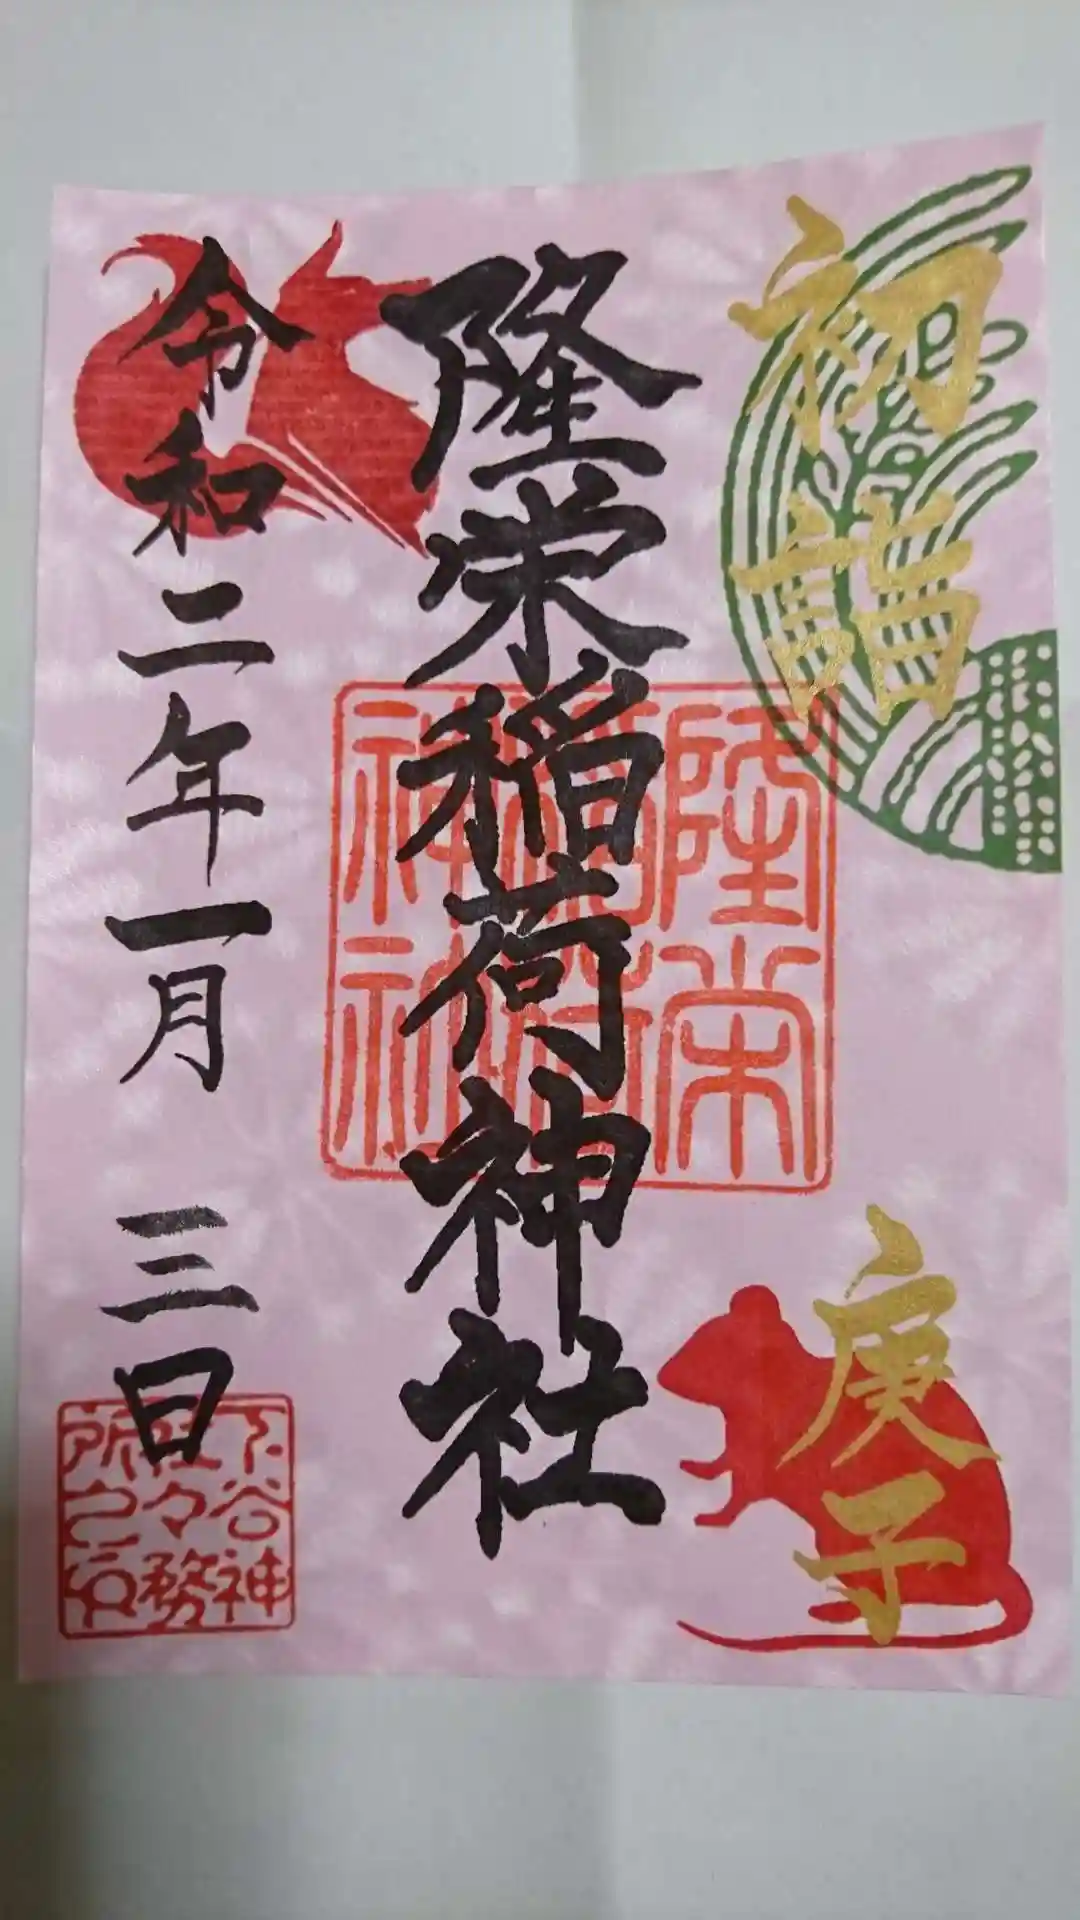 初詣
庚子
隆栄稲荷神社
隆栄
稲荷
神社
令和二年一月三日
下谷神
社々務
所之印